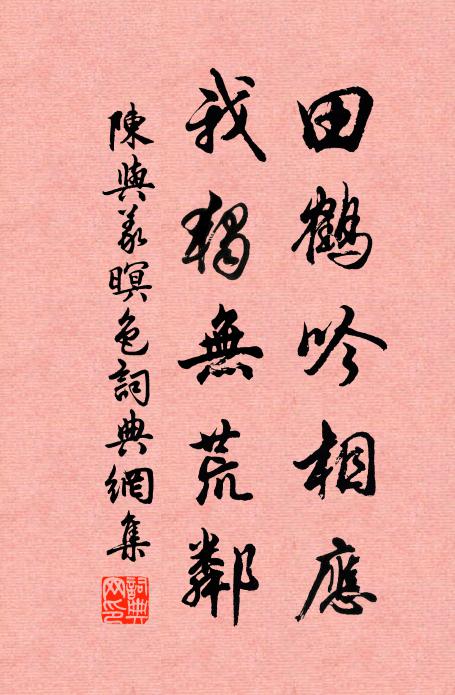 田鶴吟相應
我獨無荒鄰
陳與義暝色詞典網集
詞典網印